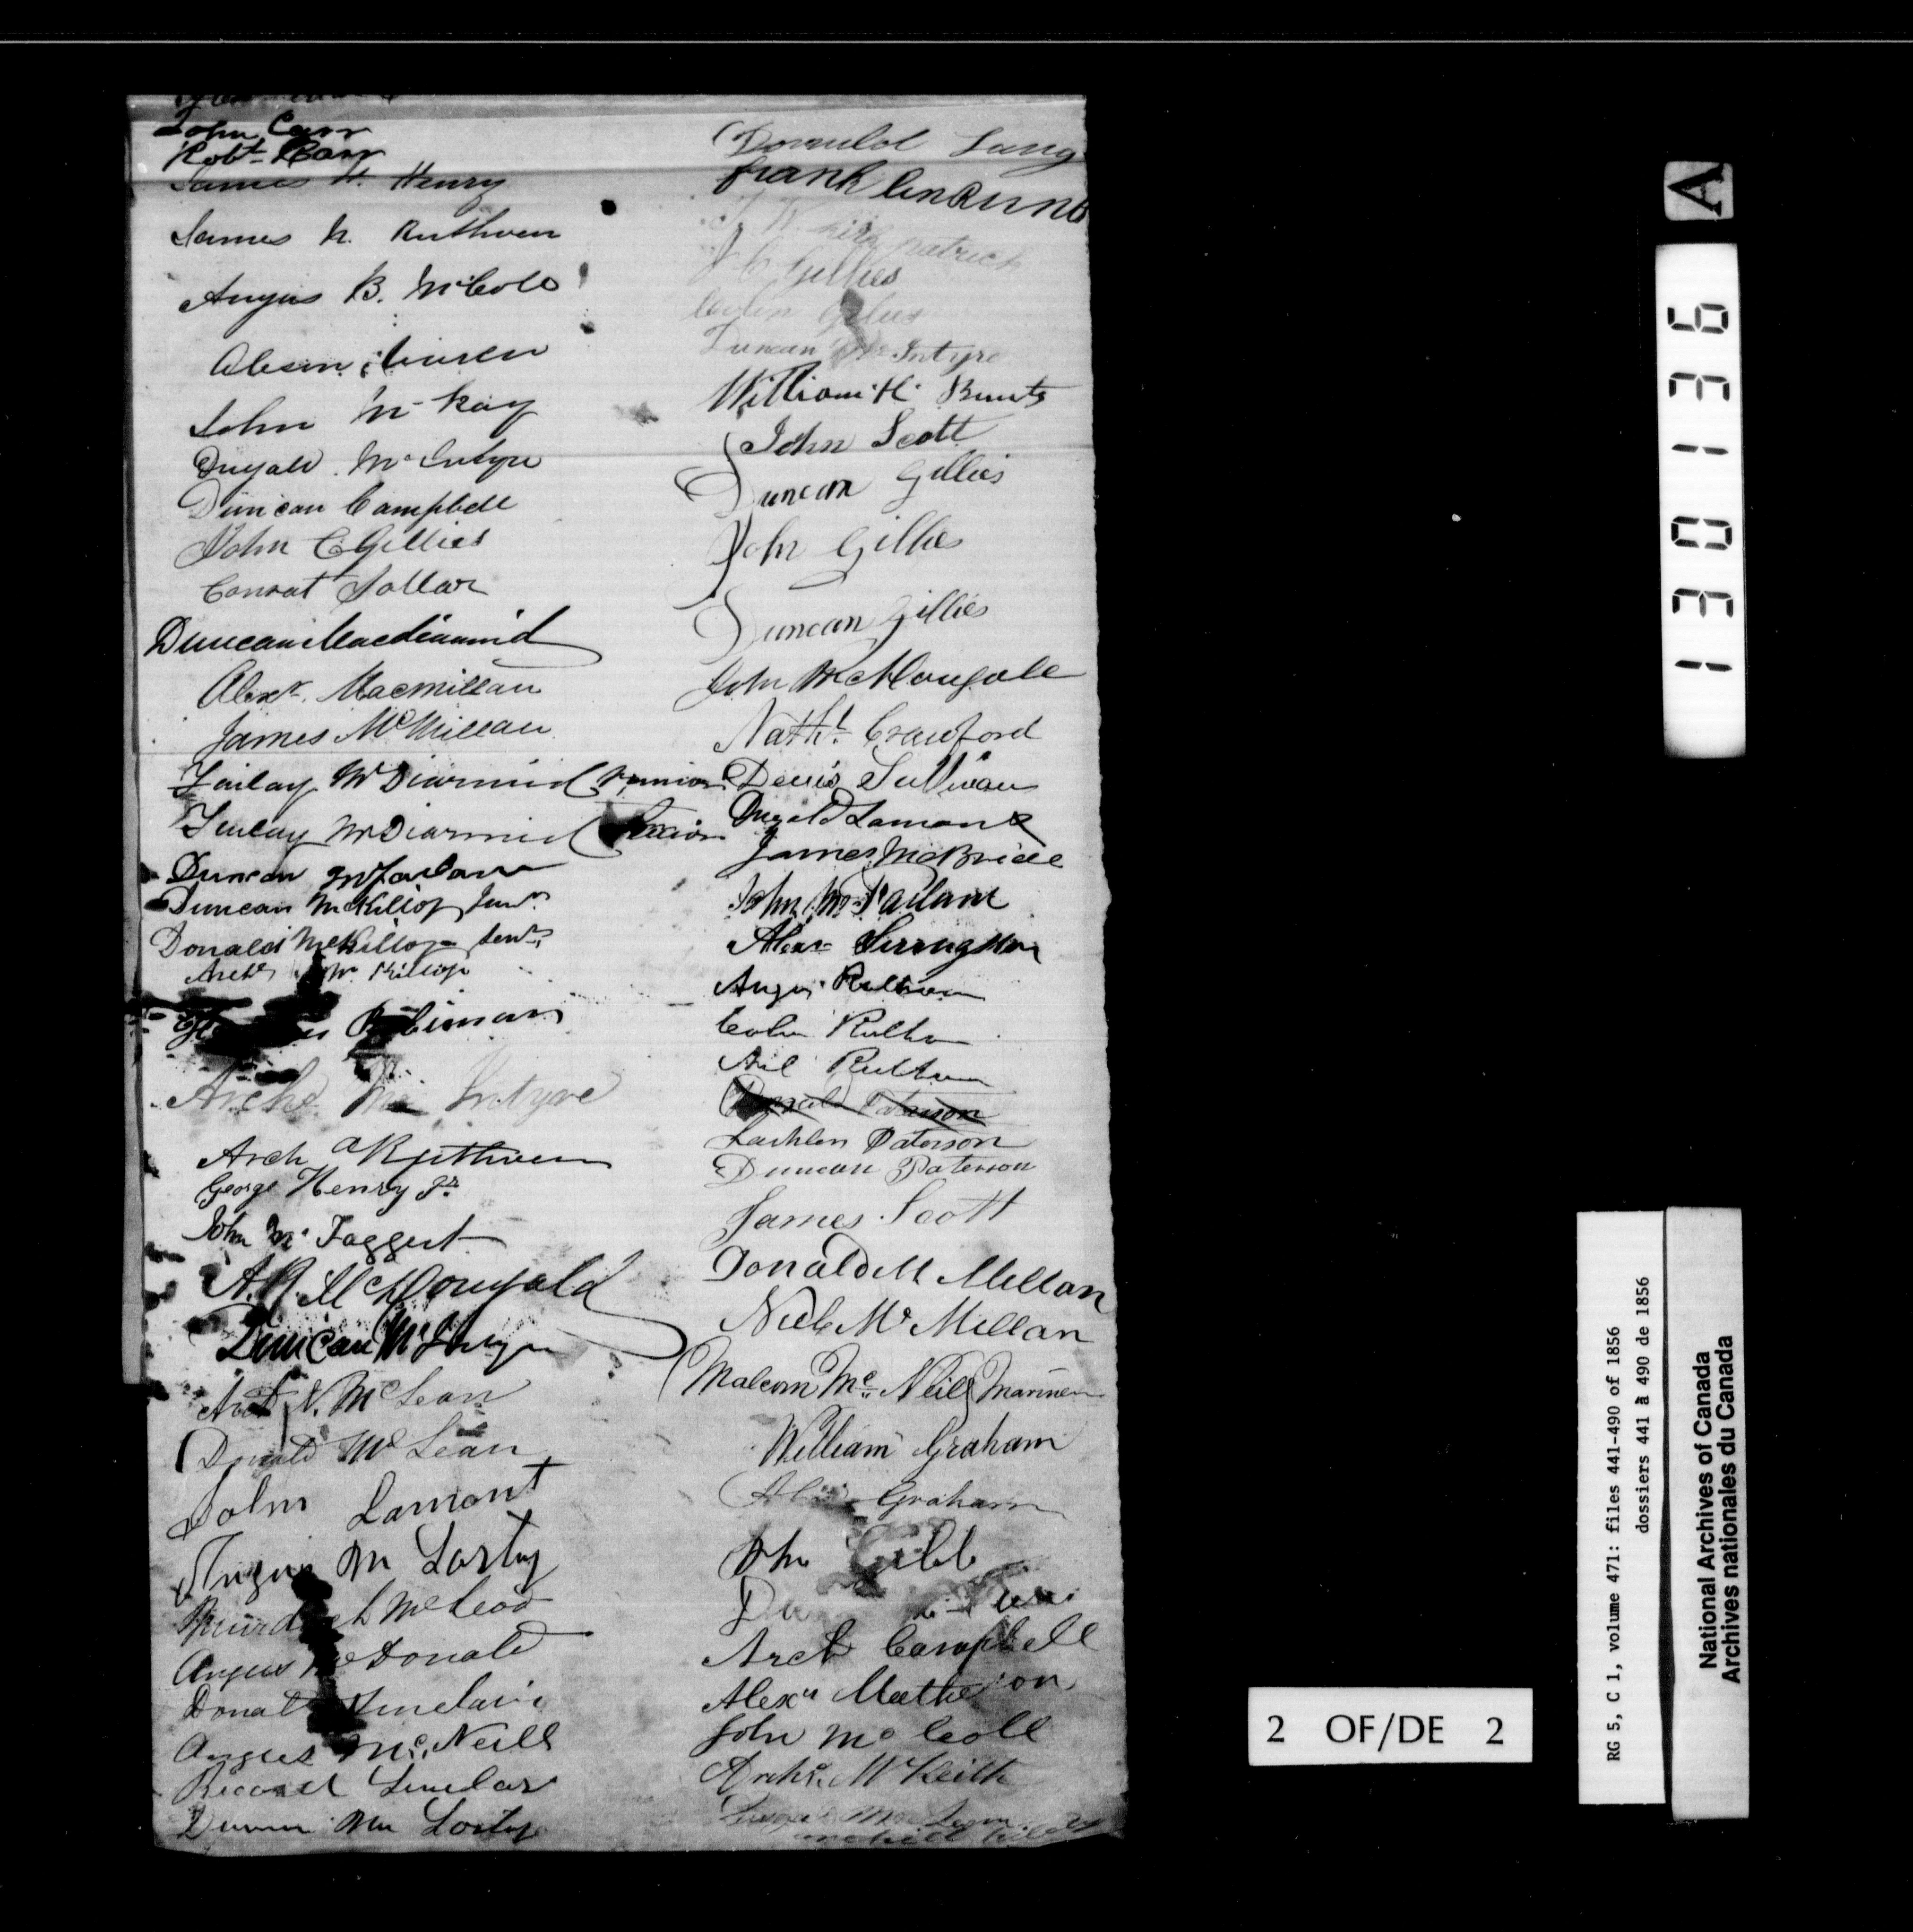 John Carr
Robt Carr
James H. Henry
James N. Ruthven
Angus B. McColl
John McKay
Dugald McIntyre
Duncan Campbell
John C Gillies
Conrat Sollar
Duncan Macdiarmid
Alexr. Macmillan
James McMillan
Finlay McDiarmid Junior
Finlay McDiarmid Senior
Duncan McFarlane
Duncan McKillop Junr
Donald McKillop Senr
Archd McKillop
Robinson
Archd McIntyre
Arch Ruthven
George Henry Jr
John McTaggert
A. R. McDougald
Duncan McIntyre
Archd N. McLean
Donald McLean
John Lamont
Angus Mc Larty
Murdoch McLeod
Angus McDonald
Donald Sinclair
Angus McNeill
Sinclair
Duncan Mc Larty
Donald Lang
Frank
J Kirkpatrick
J C Gillies
Colin Gillies
Duncan McIntyre
William H. Bunts
John Scott
Duncan Gillies
John Gillies
Duncan Gillies
John McDougall
Nathl. Crawford
Denis Sullivan
Dugald Lamont
James McBride
John McFarlane
Alexr
Angus Ruthven
Colin Ruthven
Ruthven
Donald Paterson
Lachlan Paterson
Duncan Paterson
James Scott
Donald M Millan
Neil Mc Millan
Malcom Mc Neill Mariner
William Graham
Graham
John Gibb
Arch Campbell
Alexr Matheson
John McColl
Archd. McKeith
A
130136
2 OF/DE 2
RG 5, C 1, volume 471: files 441-490 of 1856
dossiers 441 à 490 de 1856
National Archives of Canada
Archives nationales du Canada